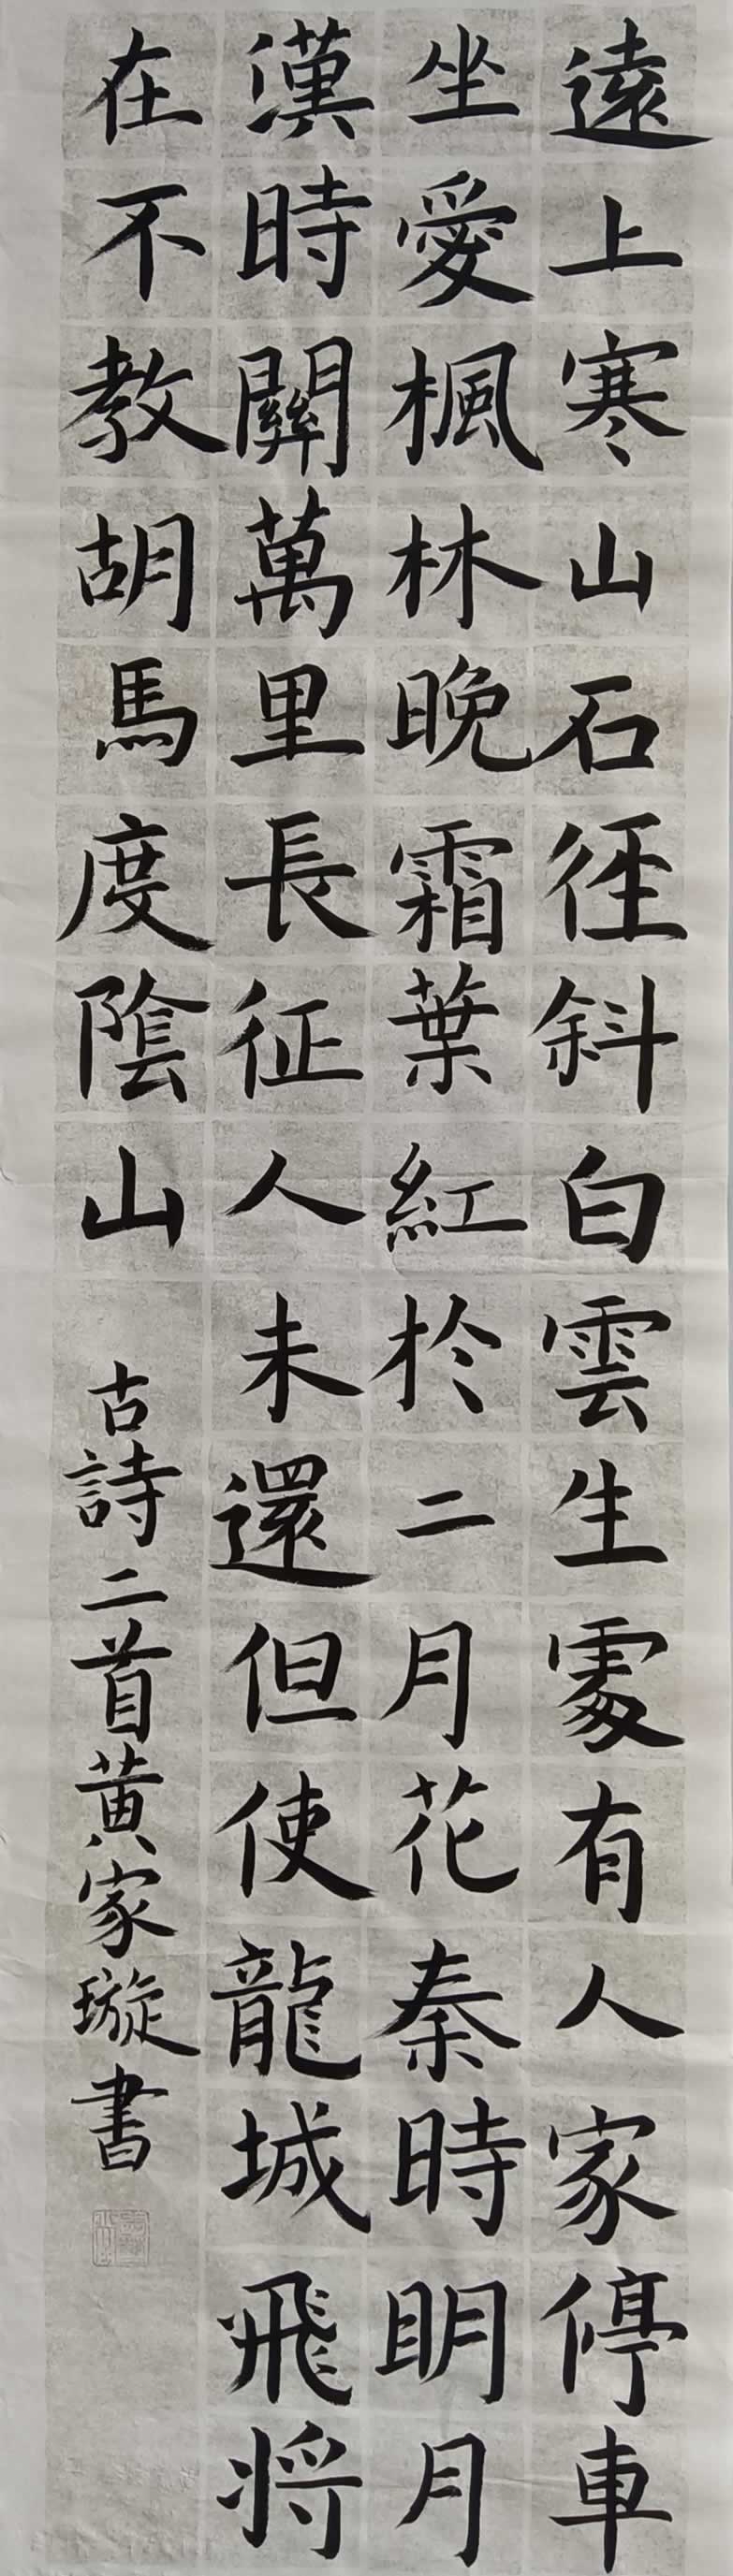 遠上寒山石徑斜白雲生處有人家停車
坐愛楓林晚霜葉紅於二月花秦時明月
漢時關萬里長征人未還但使龍城飛将
在不教胡馬度陰山
古詩二首黄家璇書